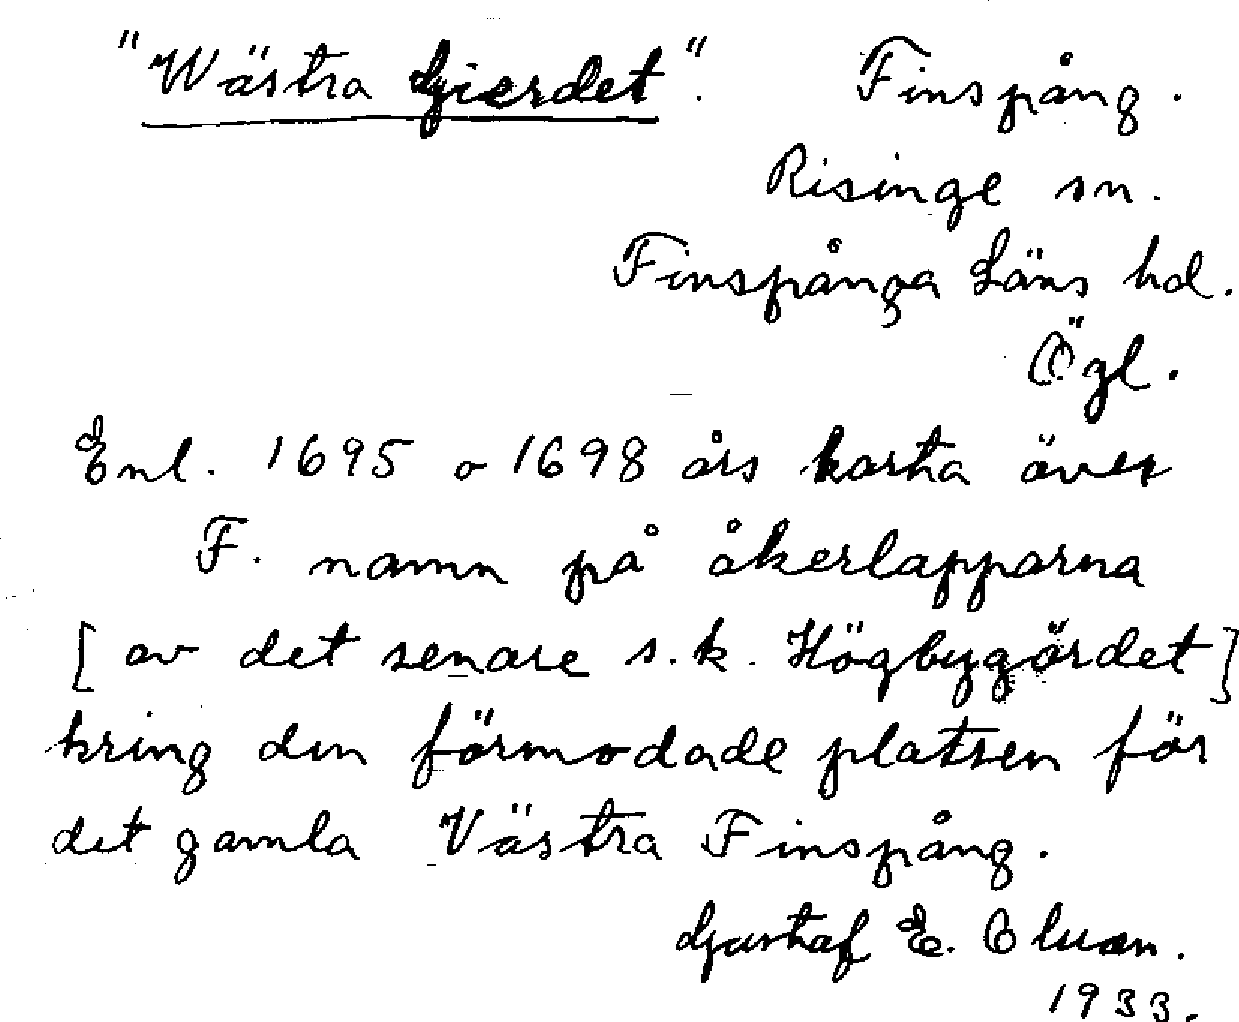 "Wästra Gierdet". Finspång.
Risinge sn.
Finspånga Läns hd.
Ögl.
Enl. 1695 o 1698 års karta över
F. namn på åkerlapparna
[ av det senare s.k. Högbygärdet ]
kring den förmodade platsen för
det gamla Västra Finspång.
Gustaf E.
1933.